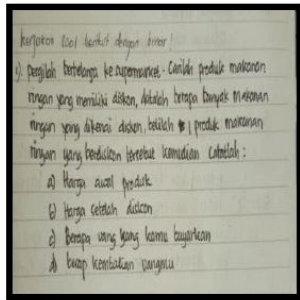 kerjakan soal berikut dengan benar!
1). pergilah berbelanja ke supermarket. Carilah produk makanan
ringan yang memiliki diskon, datalah berapa banyak makanan
ringan yang dikenai diskon, belilah 1 produk makanan
ringan yang berdiskon tersebut kemudian catatlah :
a) Harga awal produk
b) Harga setelah diskon
c) Berapa uang yang kamu bayarkan
d) kembalian uangmu